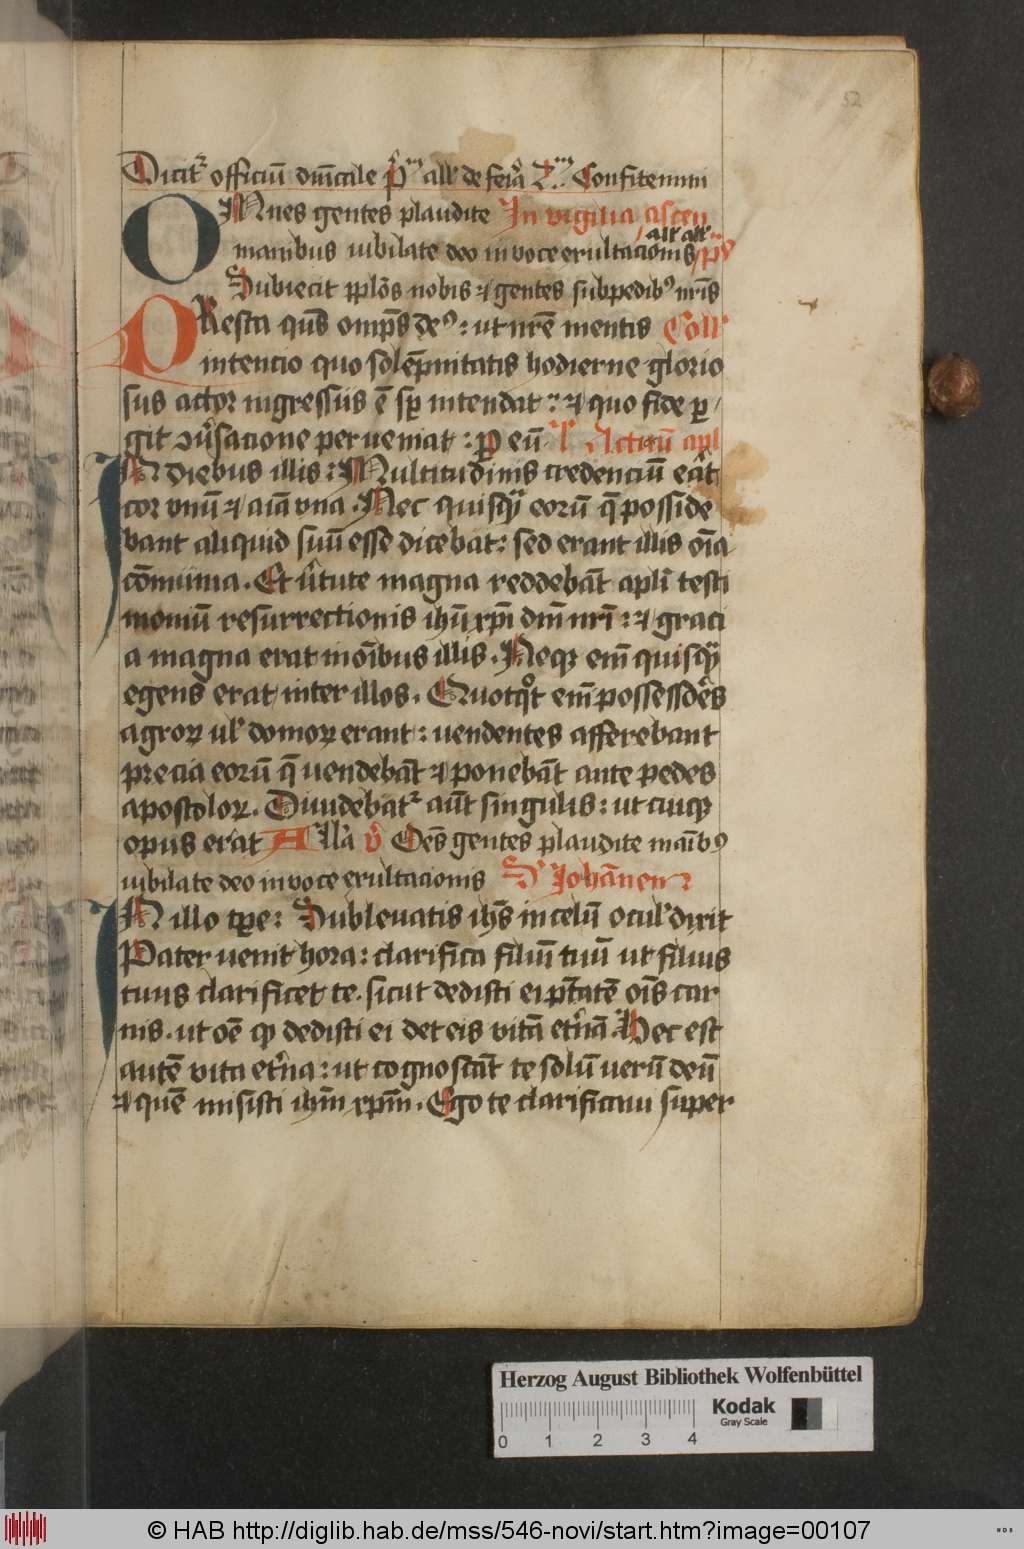 52
Dicit᷑ officiū dn̄icale p̄m all' de feria 2m Confitemini
OMnes gentes plaudite In vigilia ascen
all' all'
manibus iubilate deo in voce exultacionis ps
Subiecit pplōs nobis ⁊ gentes sub pedibꝰ nr̄is
PResta qs̄ omp̄s deꝰ: ut nr̄e mentis Coll'
intencio quo solēpnitatis hodierne glorio
sus actor ingressus ē sp̄ intendat: ⁊ quo fide ꝑ
git ꝯu̓sacione perueniat: ꝑ eū l' Actuū apl
IN diebus illis: Multitudinis credenciū erāt
cor vnū ⁊ aīa vna. Nec quisqᷓ eorū q̄ posside
bant aliquid suū esse dicebat: sed erant illis oīa
cōmunia. Et u̓tute magna reddebāt apl̄i testi
moniū resurrectionis ih̄u xp̄i dn̄i nr̄i: ⁊ graci
a magna erat in oībus illis. Neqꝫ em̄ quisqᷓ
egens erat inter illos. Quotqͦt em̄ possessōes
agroꝝ ul' domoꝝ erant: uendentes afferebant
precia eorū q̄ uendebāt ⁊ ponebāt ante pedes
apostoloꝝ. Diuidebat᷑ aūt singulis: ut cuiqꝫ
opus erat Alla v̓ Oēs gentes plaudite manibꝰ
iubilate deo in voce exultacionis S' Johānem
IN illo tp̄e: Subleuatis ih̄s in celū ocul' dixit
Pater uenit hora: clarifica filiū tuū ut filius
tuus clarificet te. sicut dedisti ei pt̄atē oīs car
nis. ut oē qꝫ dedisti ei det eis vitā et̓nā Hec est
autē vita et̓na: ut cognoscāt te solū uerū deū
⁊ quē misisti ih̄m xp̄m. Ego te clarificaui super
Herzog August Bibliothek Wolfenbüttel
0 1 2 3 4
Kodak
Gray Scale
© HAB http://diglib.hab.de/mss/546-novi/start.htm?image=00107